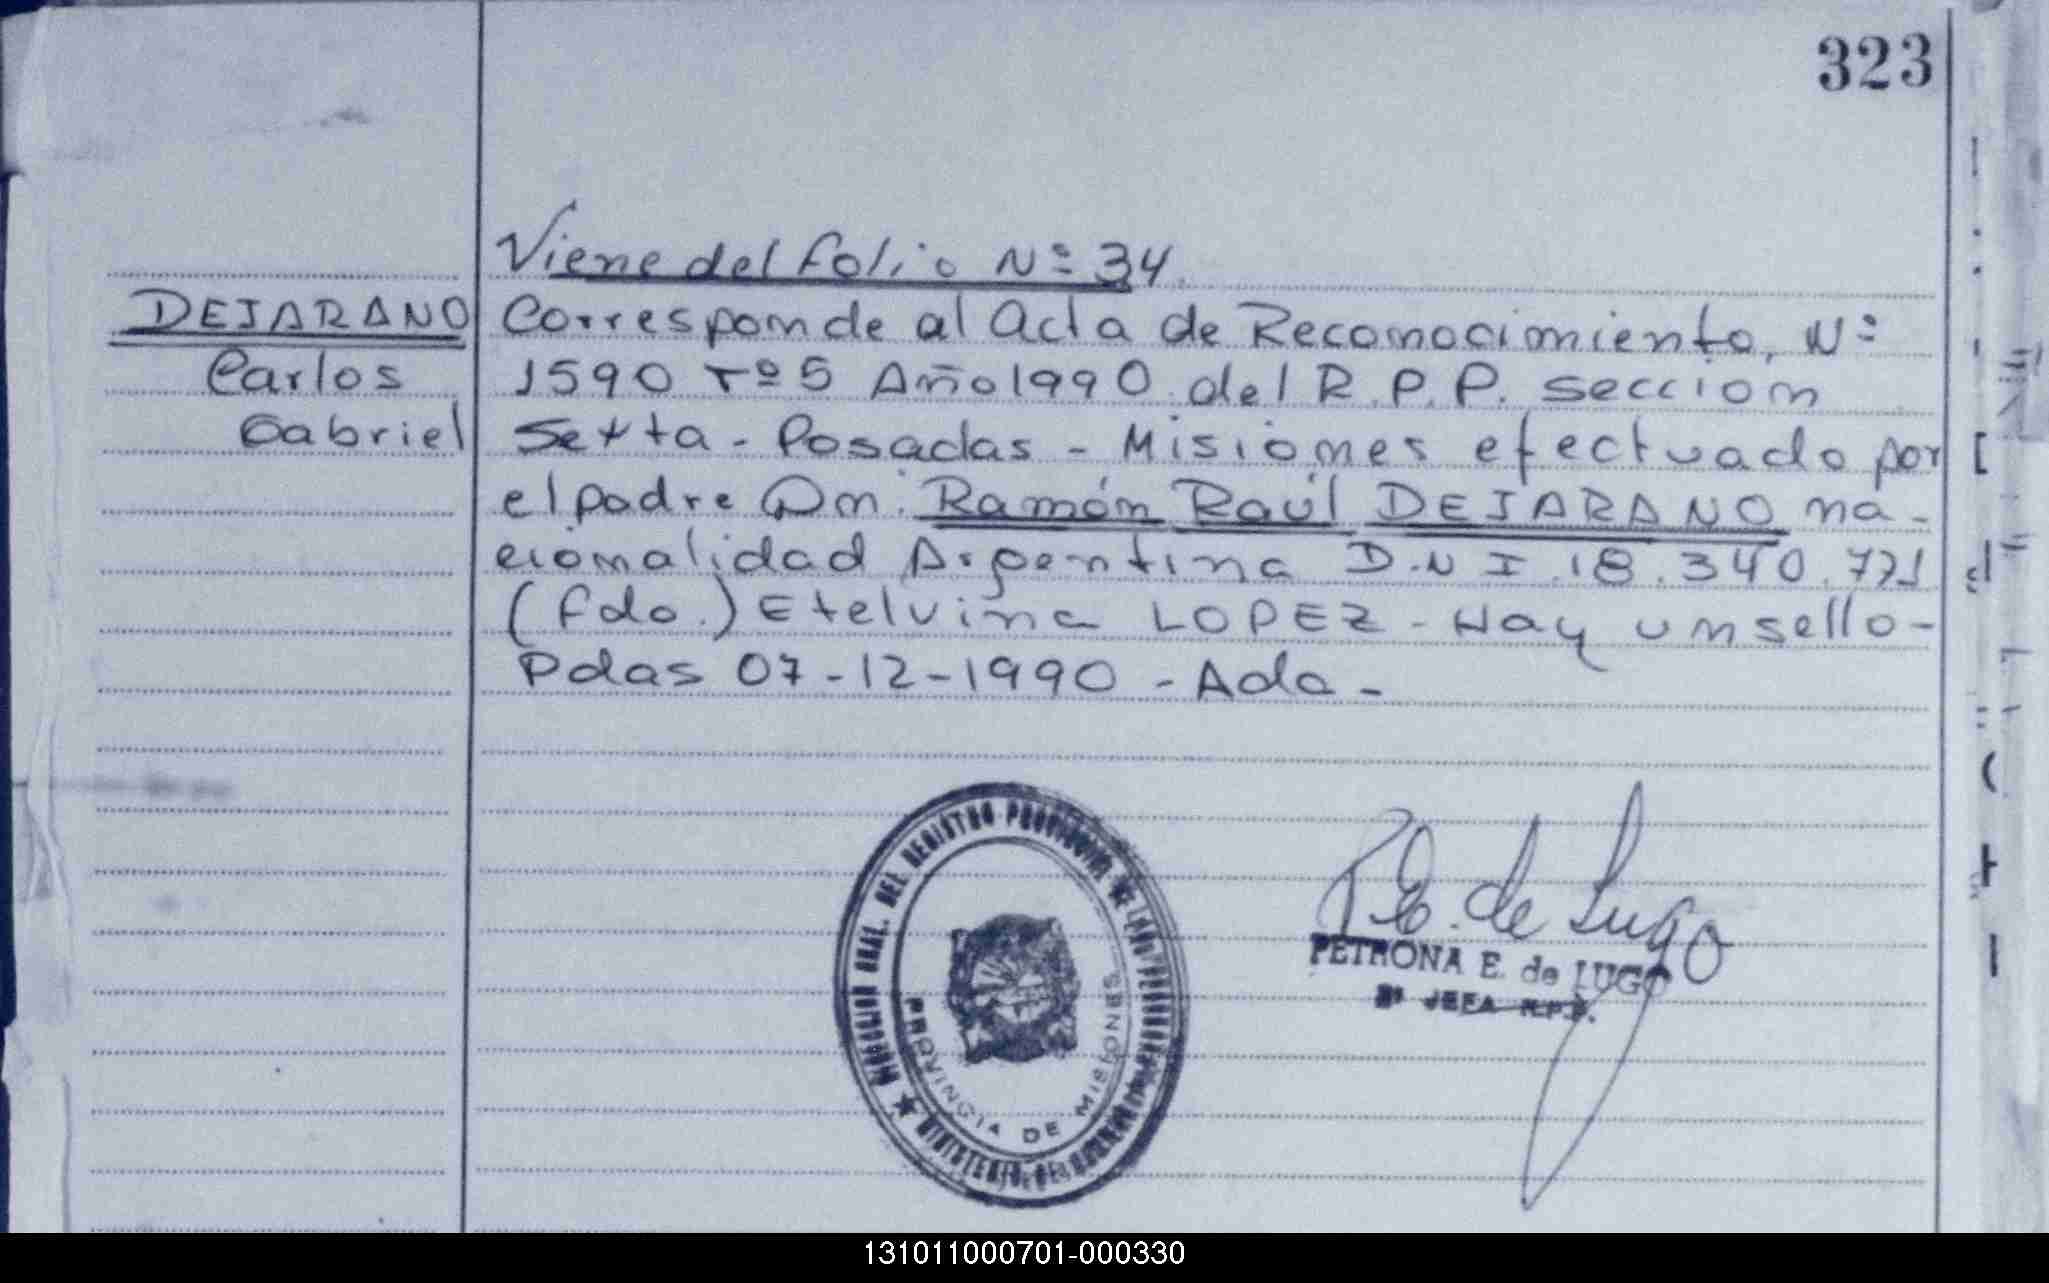 323
Viene del folio Nº 34
DEJARANO
Carlos
Gabriel
Corresponde al Acta de Reconocimiento, Nº
1590 Tº 5 Año 1990 del R.P.P. Seccion
Sexta - Posadas - Misiones efectuado por
el padre Dn. Ramón Raúl DEJARANO na-
cionalidad Argentina D.N.I. 18.340.771
(fdo.) Etelvina LOPEZ - Hay un sello -
Pdas 07-12-1990 - Ada -
DIRECCION GRAL. DEL REGISTRO PROVINCIAL DE LAS PERSONAS
PROVINCIA DE MISIONES
MINISTERIO DE
P.E. de Lugo
PETRONA E. de LUGO
2º JEFA R.P.P.
131011000701-000330